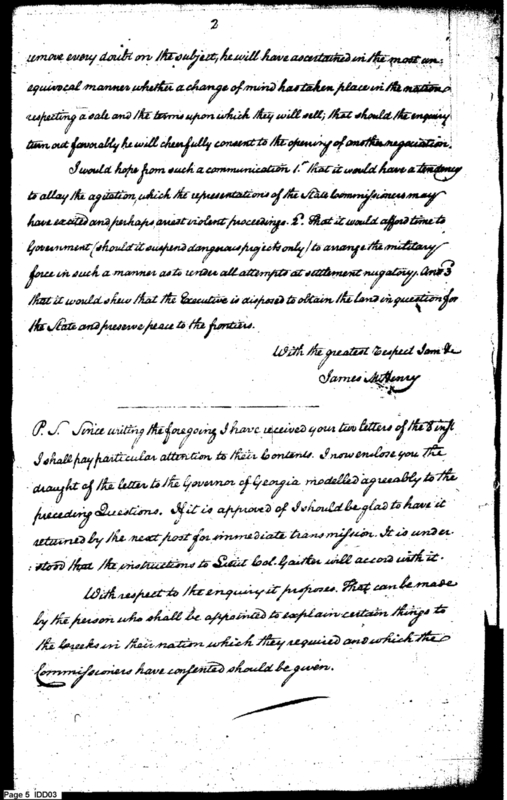 2
remove every doubt on the subject, he will have ascertained in the most un:
equivocal manner whether a change of mind has taken place in the nation
respecting a sale and the terms upon which they will sell; that should the enquiry
turn out favorably he will cheerfully consent to the opening of another negociation.
I would hope from such a communication 1st that it would have a tendency
to allay the agitation, which the representations of the State Commissioners may
have excited and perhaps arrest violent proceedings. 2d. That it would afford time to
Government (should it suspend dangerous projects only) to arrange the military
force in such a manner as to render all attempts at settlement nugatory. And 3d
that it would shew that the Executive is disposed to obtain the land in question for
the State and preserve peace to the frontiers.
With the greatest respect I am &c
James McHenry
P.S. Since writing the foregoing I have received your two letters of the 8 inst
I shall pay particular attention to their Contents. I now enclose you the
draught of the letter to the Governor of Georgia modelled agreeably to the
preceding Questions. If it is approved of I should be glad to have it
returned by the next post for immediate transmission. It is under
:stood that the instructions to Lieut Col. Gaither will accord with it.
With respect to the enquiry it proposes. That can be made
by the person who shall be appointed to explain certain things to
the Creeks in their nation which they required and which the
Commissioners have consented should be given.
Page 5 IDD03